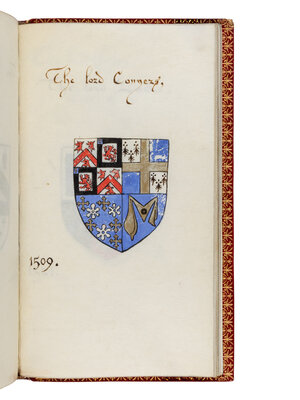 The lord Conyers.
1509.